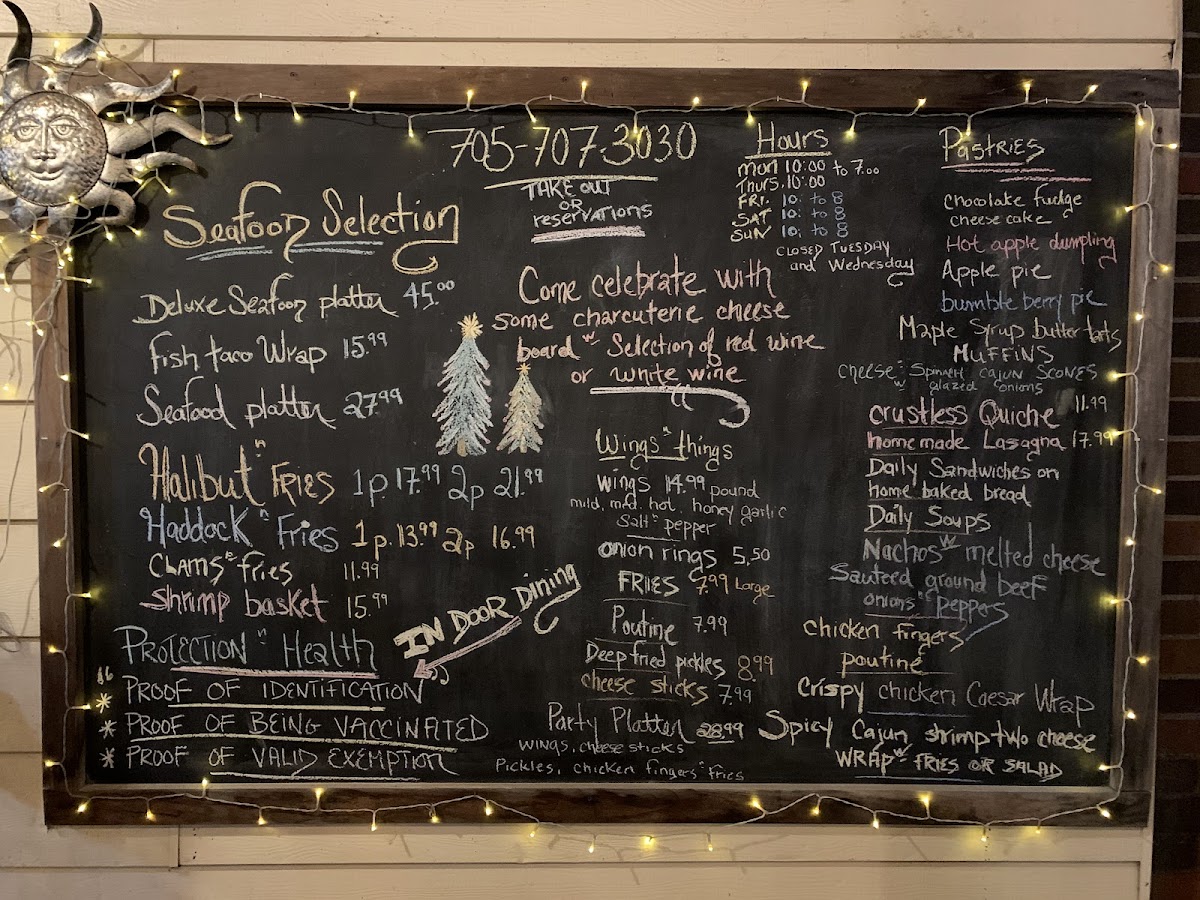 705-707-3030
TAKE OUT
OR
reservations
Hours
mon 10:00 to 7.00
Thurs. 10:00
FRI. 10: to 8
SAT 10: to 8
SUN 10: to 8
CLOSED TUESDAY
and Wednesday
Seafood Selection
Deluxe Seafood platter 45.00
fish taco Wrap 15.99
Seafood platter 27.99
Halibut "n" Fries 1p. 17.99 2p 21.99
Haddock "n" Fries 1p. 13.99 2p 16.99
CLAMS "n" fries 11.99
shrimp basket 15.99
PROTECTION "n" Health
IN DOOR Dining
* PROOF OF IDENTIFICATION
* PROOF OF BEING VACCINATED
* PROOF OF VALID EXEMPTION
Come celebrate with
some charcuterie cheese
board w Selection of red wine
or white wine
Wings "n" things
wings 14.99 pound
mild, med. hot. honey garlic
Salt "n" pepper
onion rings 5.50
FRIES 7.99 Large
Poutine 7.99
Deep fried pickles 8.99
cheese sticks 7.99
Party Platter 28.99
WINGS, cheese sticks
Pickles, chicken fingers "n" fries
Pastries
chocolate fudge
cheese cake
Hot apple dumpling
Apple pie
bumble berry pie
Maple Syrup butter tarts
MUFFINS
cheese "n" Spinach cajun SCONES
w glazed onions
crustless Quiche 11.99
home made Lasagna 17.99
Daily Sandwiches on
home baked bread
Daily Soups
Nachos w melted cheese
Sauteed ground beef
onions "n" peppers
chicken fingers
poutine
Crispy chicken Caesar Wrap
Spicy Cajun shrimp two cheese
WRAP w FRIES OR SALAD